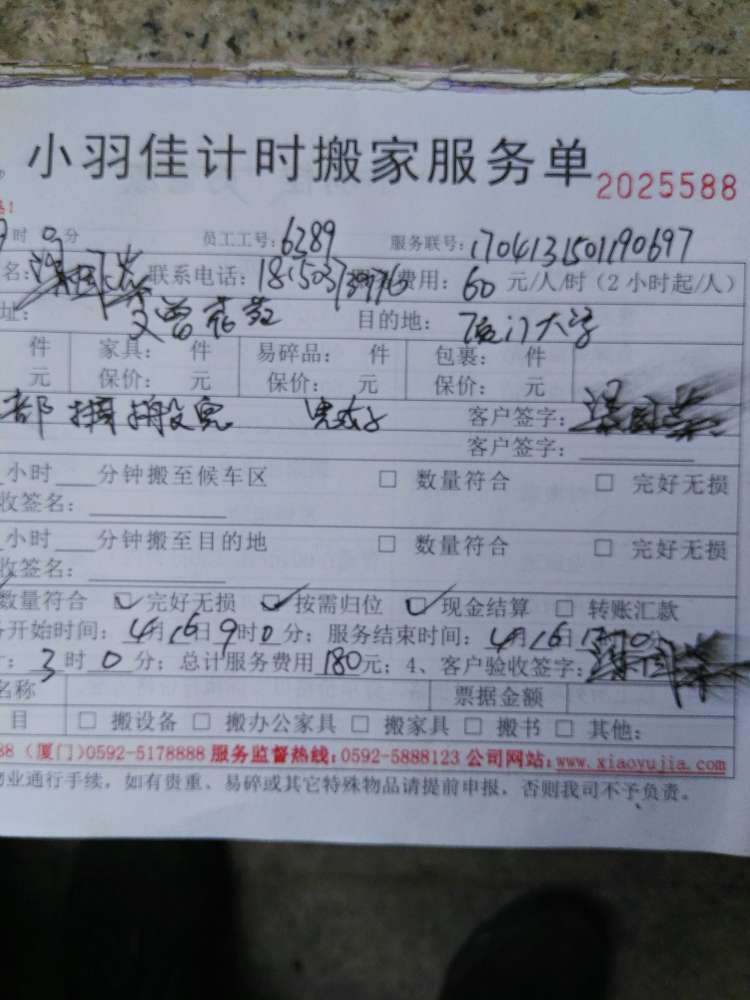 小羽佳计时搬家服务单 2025588
时 分 员工工号：6289 服务联号：1704131501190697
名： 联系电话： 费用：60 元/人/时（2 小时起/人）
址： 目的地：厦门大学
件 家具： 件 易碎品： 件 包裹： 件
元 保价： 元 保价： 元 保价： 元
部 客户签字：
客户签字：
小时 分钟搬至候车区 □ 数量符合 □ 完好无损
收签名：
小时 分钟搬至目的地 □ 数量符合 □ 完好无损
收签名：
数量符合 ☑ 完好无损 ☑ 按需归位 ☑ 现金结算 □ 转账汇款
开始时间：4月16日9时0分；服务结束时间：4月16日
：3时0分；总计服务费用180元；4、客户验收签字：
名称 票据金额
目 □ 搬设备 □ 搬办公家具 □ 搬家具 □ 搬书 □ 其他：
88（厦门）0592-5178888 服务监督热线：0592-5888123 公司网站：www.xiaoyujia.com
业通行手续，如有贵重、易碎或其它特殊物品请提前申报，否则我司不予负责。